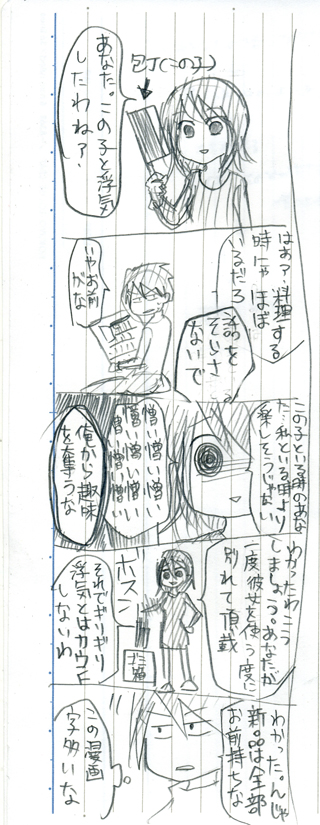 包丁(この子)
あなた。この子と浮気
したわね？
はあ？料理する
時にゃほぼ
いるだろ
話を
そらさ
ないで
いやお前
がな
この子といる時のあな
た…私といる時より
楽しそうじゃない！
憎い憎い憎い
憎い憎い憎い
憎い憎い憎い
俺から趣味
を奪うな
わかったわこう
しましょう。あなたが
一度彼女を使う度に
別れて頂戴
ボスン
ゴミ
箱
それでギリギリ
浮気とはカウント
しないわ
わかった。んじゃ
新品は全部
お前持ちな
この漫画
字多いな